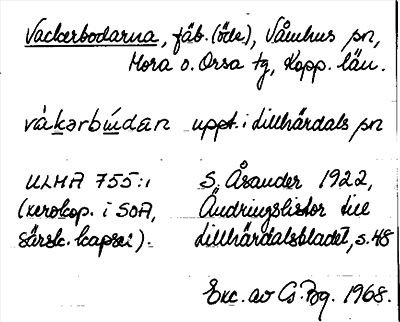 Vackerbodarna, fäb. (öde), Våmhus sn,
Mora o. Orsa tg, Kopp. län.
vàkərbúdan uppt. i Lillhärdals sn
ULMA 755:1 S. Åsander 1922,
(xerokop. i SOA, Ändringslistor till
särsk. kapsel). Lillhärdalsbladet, s. 48
Exc. av G. Bg. 1968.